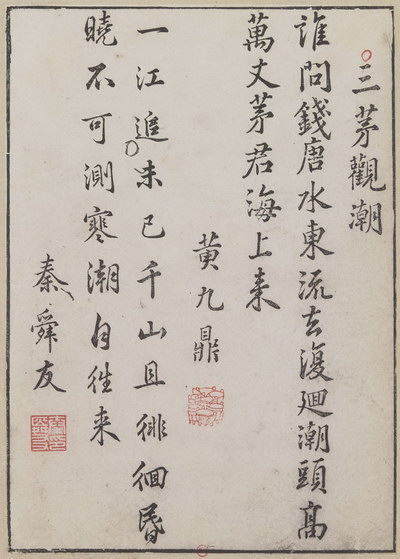 三茅觀潮
誰問錢唐水東流去復迴潮頭高
萬丈茅君海上来
黄九鼎
一江追未已千山且徘徊昏
曉不可測寒潮自徃来
秦舜友